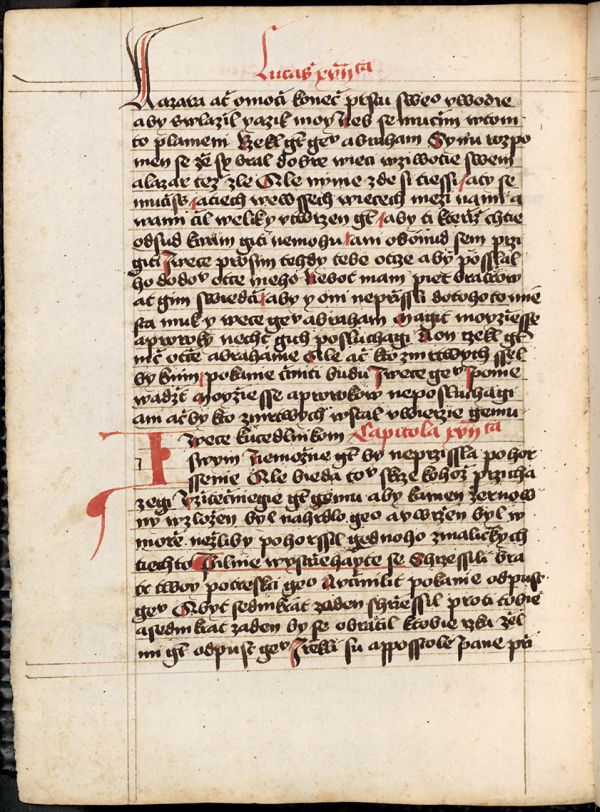 Lucas xvii ta
Lazara ať omočí koneč prstu sweo ywodie
aby swlažil yazik moy Neb se mučim wtom
to plameni Řzekl gt geř abraham Synu rozpo
men se že sy bral dobre wieci wziwotie swem
a lazar tez zle Ale nynie zde si tiessi aty se
mučiss a wtiech wewssech wiecech mezi nami a
wami čil weliky vtwrzen gt aby ti kteříž chtie
odsud kwam giti nemohu ani odonud sem przi
giti Iwece prosim tehdy tebe otcze aby possial
ho do domu otce meho Nebot mam piet bratrow
ať gim swiedčí aby y oni nepřissli dotohoto mie
sta muk y wece geř abraham Magit moyziesse
a proroky nechť gich posluchagi A on rzekl gt
nič otče abrahame Ale ač kto zmrtwych ssel
by knim pokanie činiti budu Iwece geř Ponie
wadž moyziesse a prorokow neposluchagi
ani ač by kto zmrtwych wstal vwierzie gemu
Iwece kučedlnikom Capitola xvii ta
swym Nemožne gt by neprzissla pohor
ssenie Ale bieda toř skrze kohož przicha
zegi Vžitečniegie gt gemu aby kamen žernow
ny wzložen byl nahrdlo geo a vwržen byl w
more nežliby pohorssil gednoho zmaličkych
tiechto Pilnie wystřiehayte se Shrzessili bra
tr twoy potresci geo A včinilit pokanie odpust
geř A byť sedmkrat zaden shřiessil proti tobie
a sedmkrat zaden by se obratil ktobie rzka žel
mi gt odpust geř I rzekli su apposstole Pane při